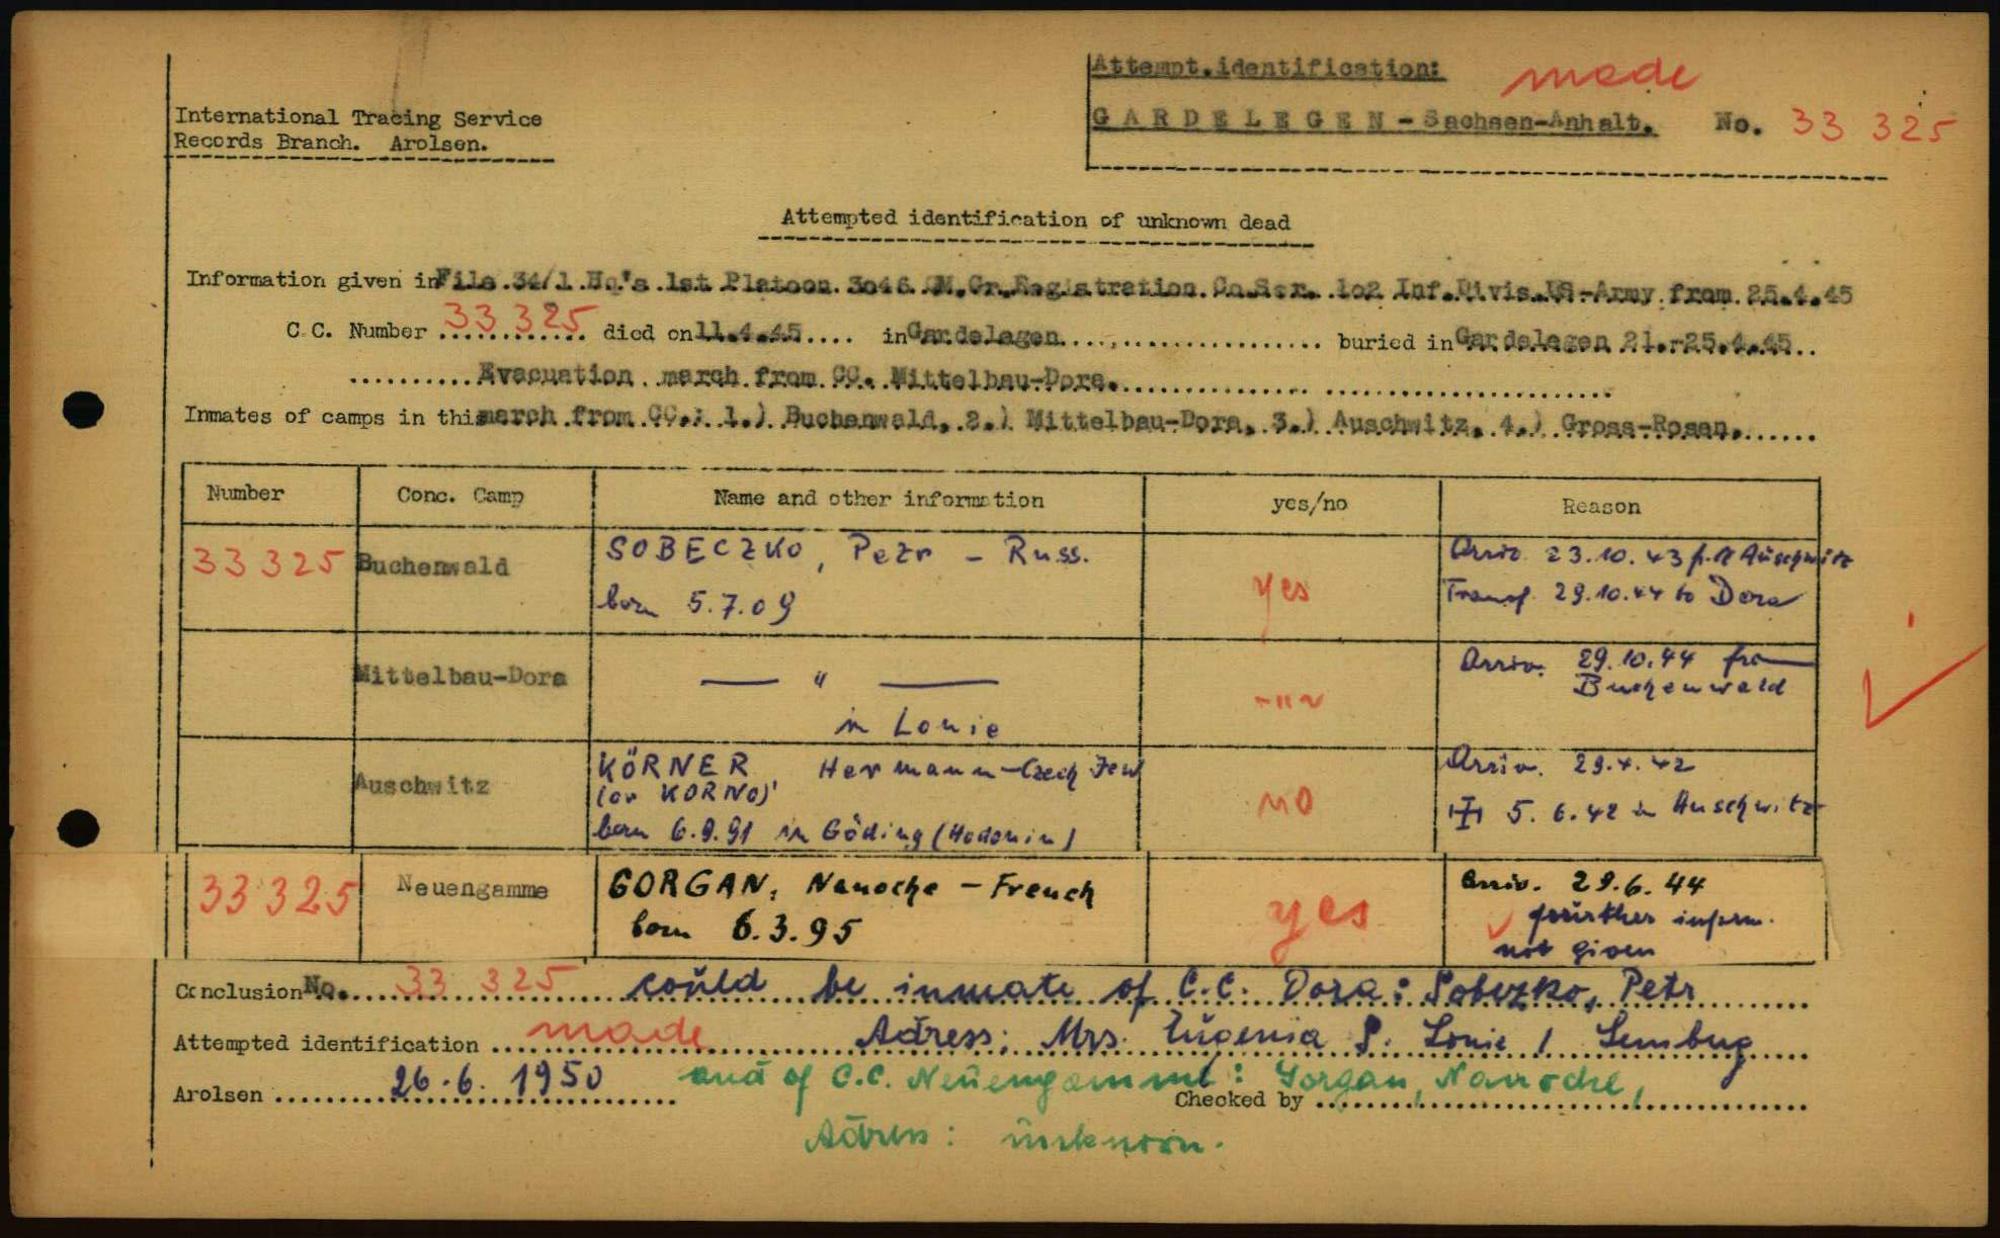 Attempt.identification: made
International Tracing Service
Records Branch. Arolsen.
GARDELEGEN - Sachsen-Anhalt. No. 33 325
Attempted identification of unknown dead
Information given in File 34/1 Hq's 1st Platoon 3046 QM.Gr.Registration Co.Ser. 102 Inf.Divis.US-Army from 25.4.45
C.C. Number 33 325 died on 11.4.45 in Gardelegen buried in Gardelegen 21.-25.4.45
Evacuation march from CC. Mittelbau-Dora.
Inmates of camps in this march from CC.: 1.) Buchenwald, 2.) Mittelbau-Dora, 3.) Auschwitz, 4.) Gross-Rosen.
Number Conc. Camp Name and other information yes/no Reason
33 325 Buchenwald SOBECZKO, Petr - Russ. yes Arriv. 23.10.43 f. Auschwitz
born 5.7.09 Transf. 29.10.44 to Dora
Mittelbau-Dora — " — -"- Arriv. 29.10.44 from
Buchenwald
in Lonie
Auschwitz KÖRNER, Hermann - Czech Jew no Arriv. 29.4.42
(or KORNO)
5.6.42 in Auschwitz
born 6.9.91 in Göding (Hodonin)
33 325 Neuengamme GORGAN, Nanoche - French yes Arriv. 29.6.44
born 6.3.95 further inform.
not given
Conclusion No. 33 325 could be inmate of C.C. Dora: Sobezko, Petr
Attempted identification made Adress: Mrs. Eugenia S. Lonie / Lemburg
Arolsen 26.6.1950 and of C.C. Neuengamme: Gorgan, Nanoche,
Checked by
Adress: unknown.